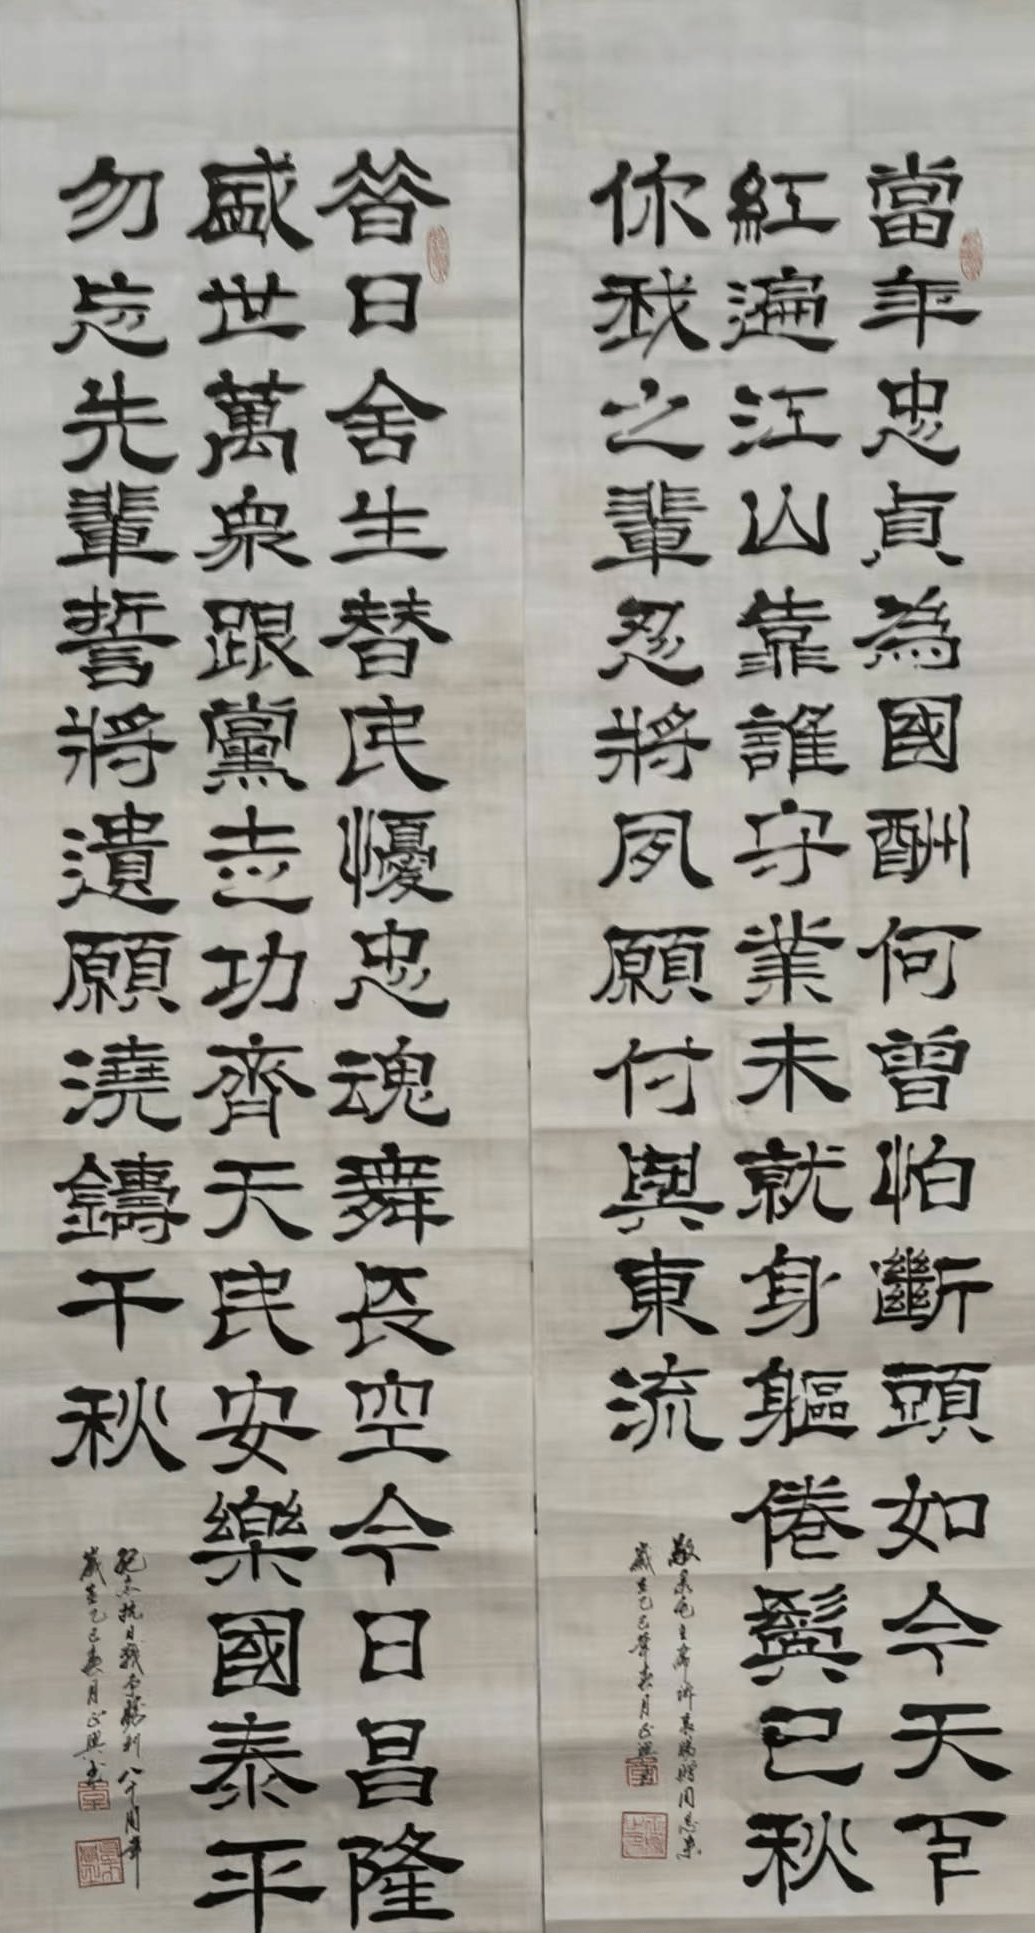 當年忠貞為國酬何曾怕斷頭如今天下
紅遍江山靠誰守業未就身軀倦鬢已秋
你我之輩忍將夙願付與東流
敬录毛主席诉衷肠赠周恩来
歲在乙巳年春月正興書
昔日舍生替民懮忠魂舞長空今日昌隆
盛世萬衆跟黨走功齊天民安樂國泰平
勿忘先輩誓將遺願澆鑄千秋
紀念抗日戰爭勝利八十周年
歲在乙巳春月正興書